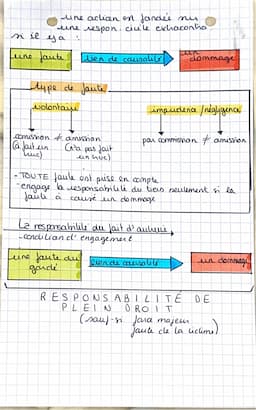 une action est fondée sur
une respon. civile extracontra
s'il y a :
une faute
lien de causalité
un
dommage
type de faute
volontaire
imprudence / négligence
comission ≠ omission
(a fait un truc)
(n'a pas fait un truc)
par commission ≠ omission
- TOUTE faute est prise en compte
- engage la responsabilité du bien seulement si la
faute a causé un dommage
La responsabilité du fait d'autrui
- condition d'engagement
une faute du
gardé
lien de causalité
un dommage
RESPONSABILITÉ DE
PLEIN DROIT
(sauf si force majeur
faute de la victime)